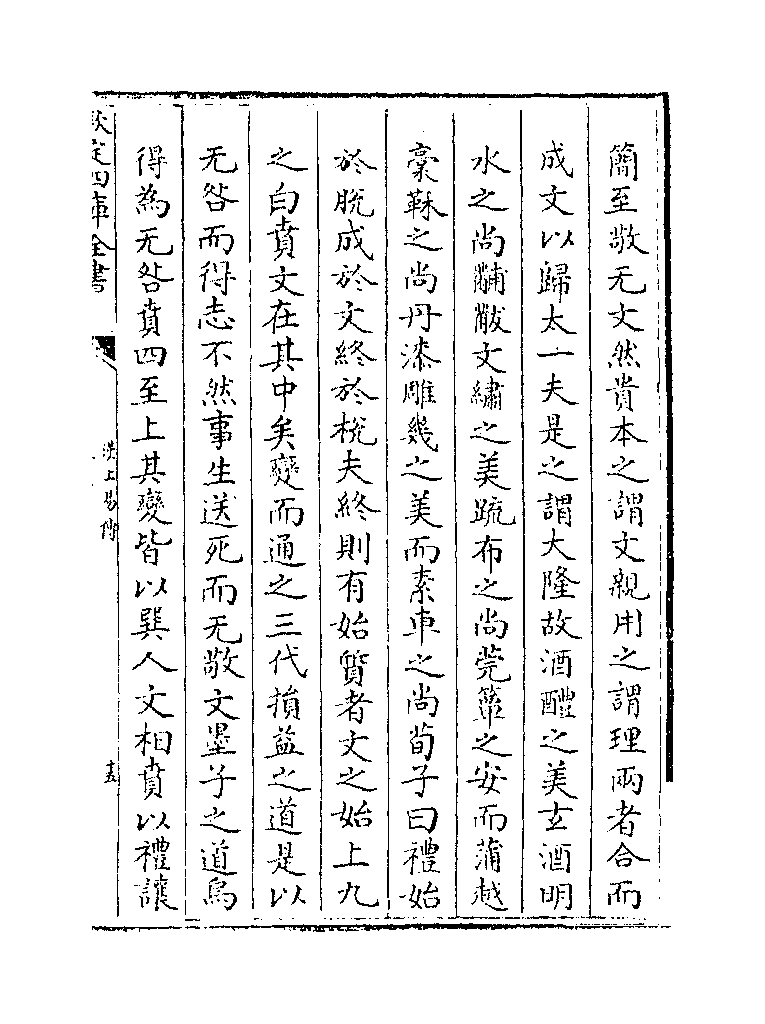 簡至敬无文然貴本之謂文親用之謂理兩者合而
成文以歸太一夫是之謂大隆故酒醴之美玄酒明
水之尚黼黻文繡之美疏布之尚莞簟之安而蒲越
稾鞂之尚丹漆雕幾之美而素車之尚荀子曰禮始
於脫成於文終於梲夫終則有始質者文之始上九
之白賁文在其中矣變而通之三代損益之道是以
无咎而得志不然事生送死而无敬文墨子之道烏
得為无咎賁四至上其變皆以巽人文相賁以禮讓
欽定四庫全書
漢上易傳
十五